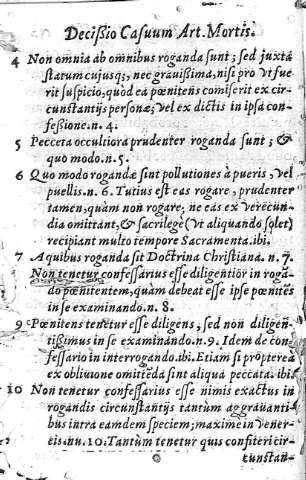 Decisſio Caſuum Art. Mortis.
4 Non omnia ab omnibus roganda ſunt; ſed juxtá
ſtatum cujuſq;, nec grauiſſima, niſi pro vt fue
rit ſuſpicio, quòd ea pœnitens comiſerit ex cir-
cunſtantijs perſonæ; vel ex dictis in ipſa con-
feßione. n. 4.
5 Pecceta occultiora prudenter roganda ſunt; &
quo modo. n. 5.
6 Quo modo rogandæ ſint pollutiones à pueris, vel
puellis. n. 6. Tutius eſt eas rogare, prudenter
tamen, quàm non rogare; ne eas ex verecun-
dia omittant, & ſacrilegè (vt aliquando ſolet)
recipiant multo tempore Sacramenta. ibi.
7 A quibus roganda ſit Doctrina Chriſtiana. n. 7.
Non tenetur confeſſarius eſſe diligentiòr in roga-
do pœnitentem, quàm debeat eſſe ipſe pœnitẽs
in ſe examinando. n. 8.
9 Pœnitens tenetur eſſe diligens, ſed non diligen-
tiſſimus in ſe examinando. n. 9. Idem de con-
feſſario in interrogando. ibi. Etiam ſi propterea
ex obliuione omittẽda ſint aliqua peccata. ibi.
10 Non tenetur confeſſarius eſſe nimis exactus in
rogandis circunſtantijs tantùm aggrauanti-
bus intra eamdem ſpeciem; maximè in vener-
eis. nu. 10. Tantùm tenetur quis confiteri cir-
cunſtan-